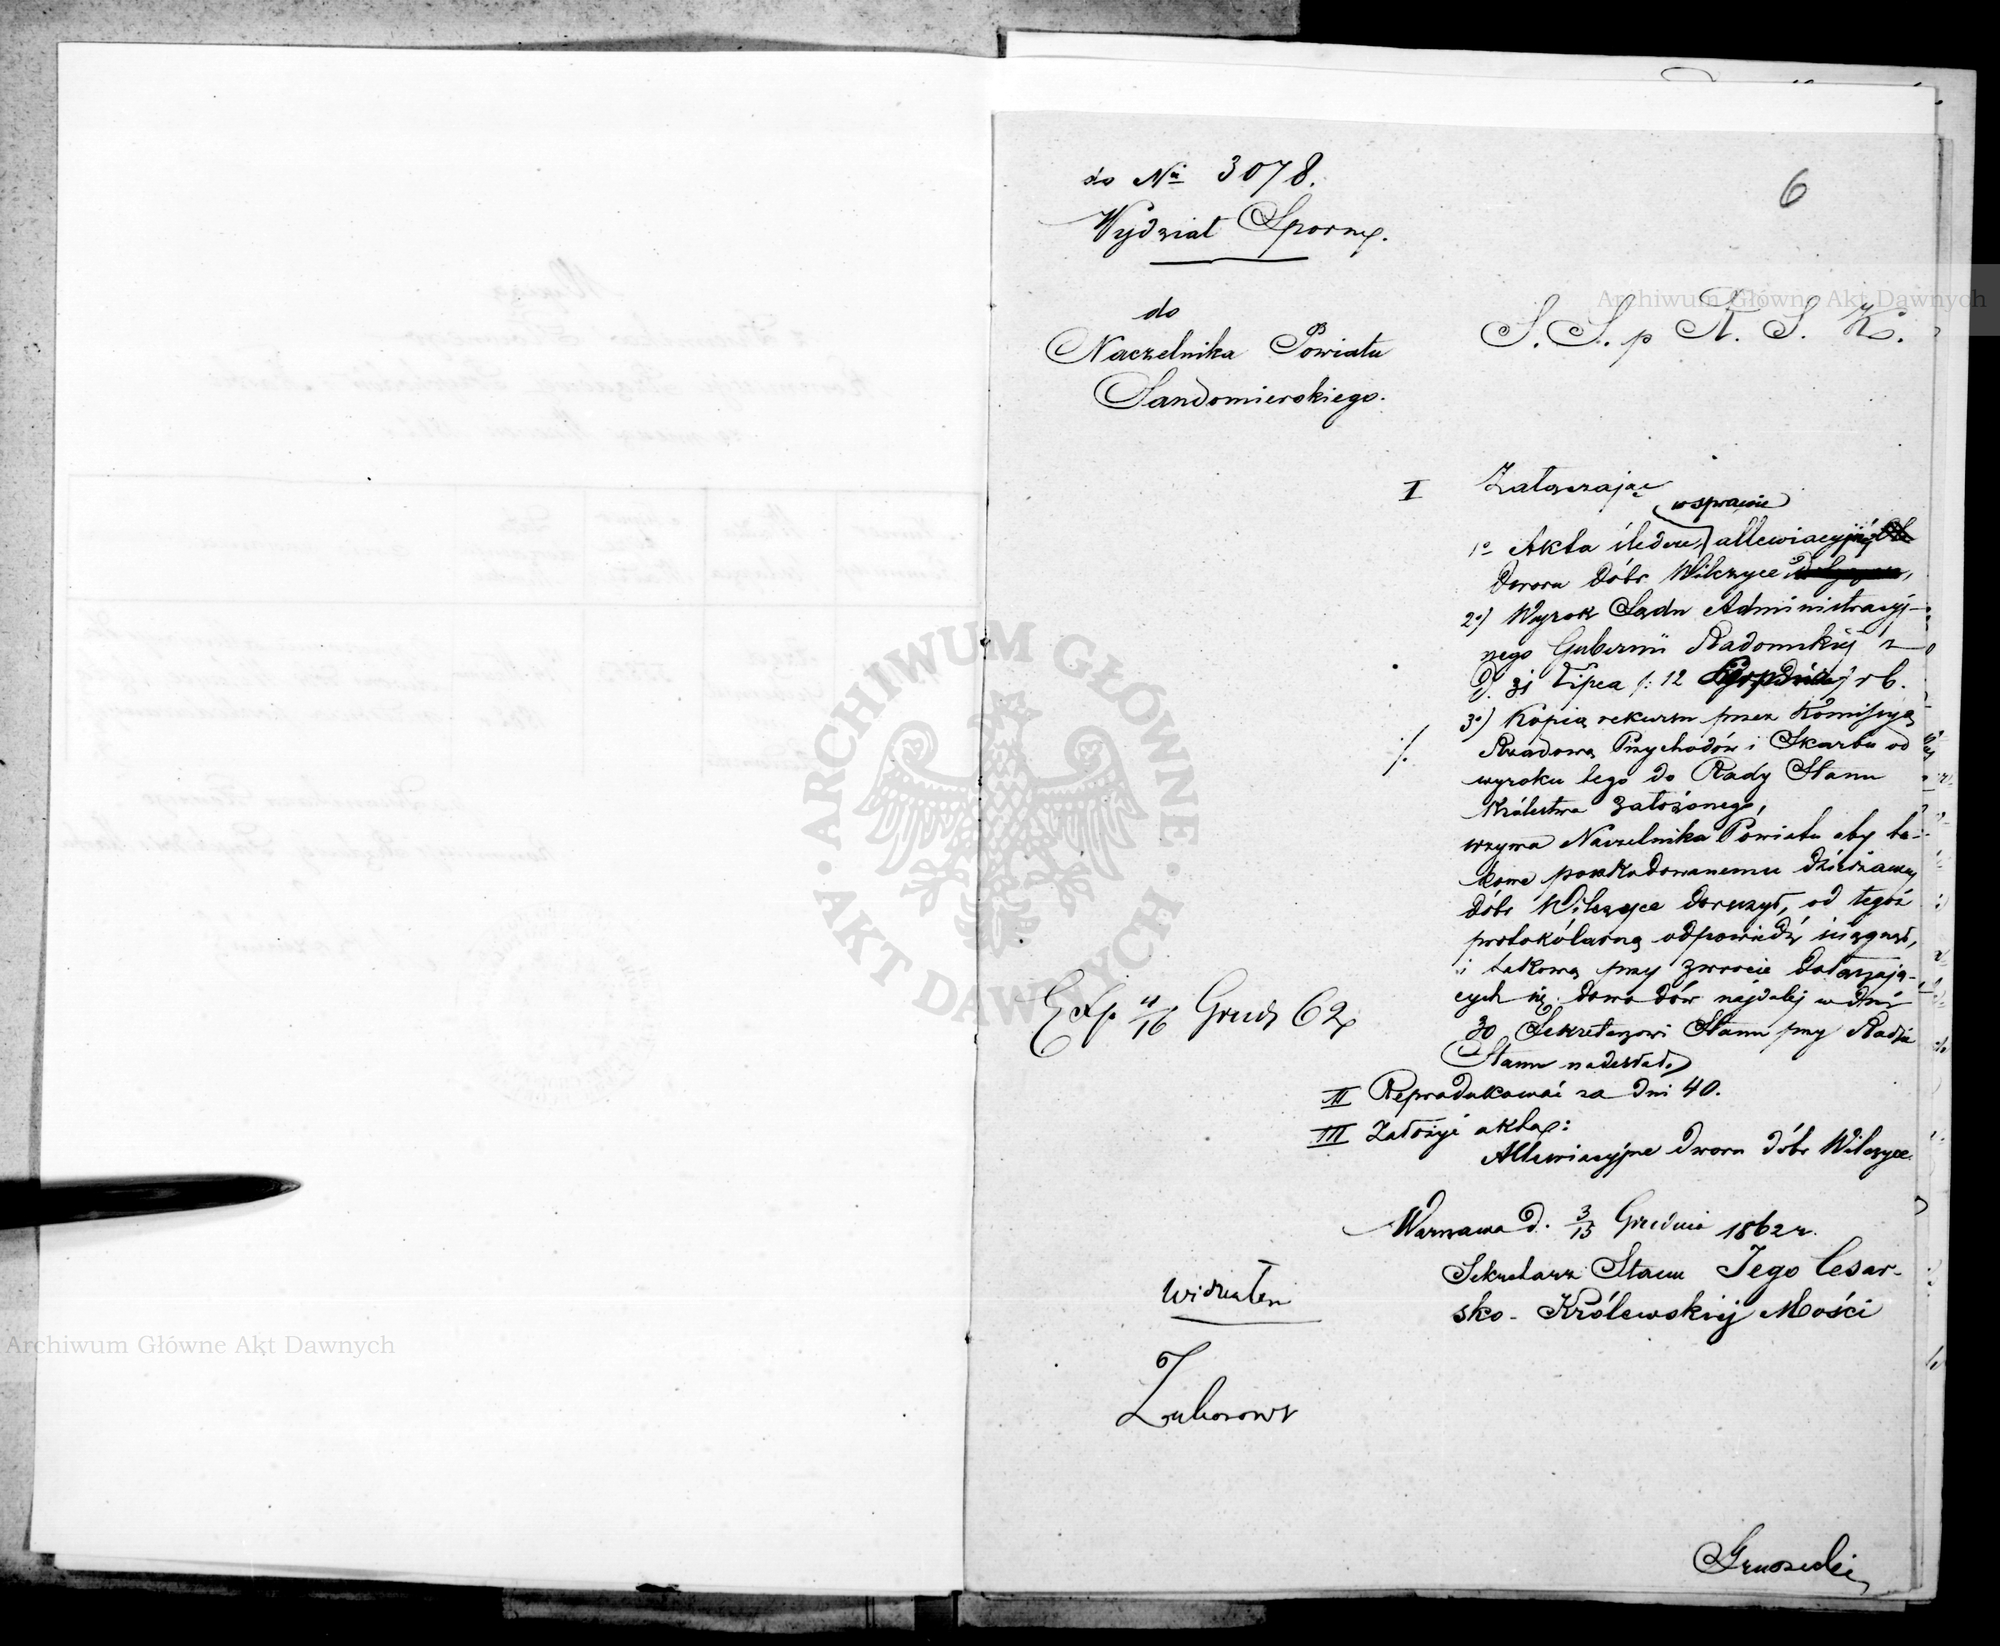 do № 3078.
6
Wydział Sporny.
do
Naczelnika Powiatu
Sandomierskiego.
S. S. p R. S. K.
I Załączając
w sprawie
1º Akta śledcze, allewiacyjnéj
dworu dóbr Wilczyce,
2º) Wyrok Sądu Administracyj-
nego Gubernii Radomskiéj z
d. 31 Lipca /: 12 r b.
3º) Kopią rekursu przez Kommissyą
Rządową Przychodów i Skarbu od
wyroku tego do Rady Stanu
Królestwa założonego,
wzywa Naczelnika Powiatu aby ta-
kowe poszkodowanemu dzierżawcy
dóbr Wilczyce doręczył, od tegoż
protokólarną odpowiedź ściągnął,
i takową przy zwrocie dołączają-
cych się dowodów najdalej w dni
30 Sekretarzowi Stanu przy Radzie
Stanu nadesłał.
Exp. 4/16 Grud 62
II Reprodukować za dni 40.
III Założyć akta:
Allewiacyjne dworu dóbr Wilczyce.
Warszawa d. 3/15 Grudnia 1862 r.
Sekretarz Stanu Jego Cesar-
sko-Królewskiéj Mości
widziałem
Archiwum Główne Akt Dawnych
Archiwum Główne Akt Dawnych
ARCHIWUM GŁÓWNE · AKT DAWNYCH ·